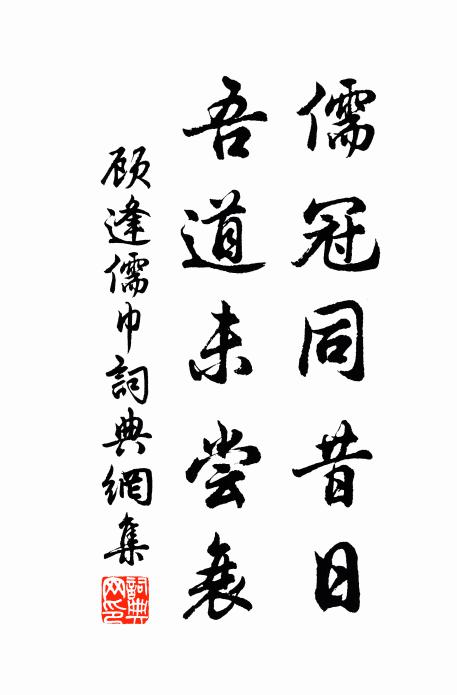 儒冠同昔日
吾道未尝衰
顾逢儒巾詞典網集
詞典网印